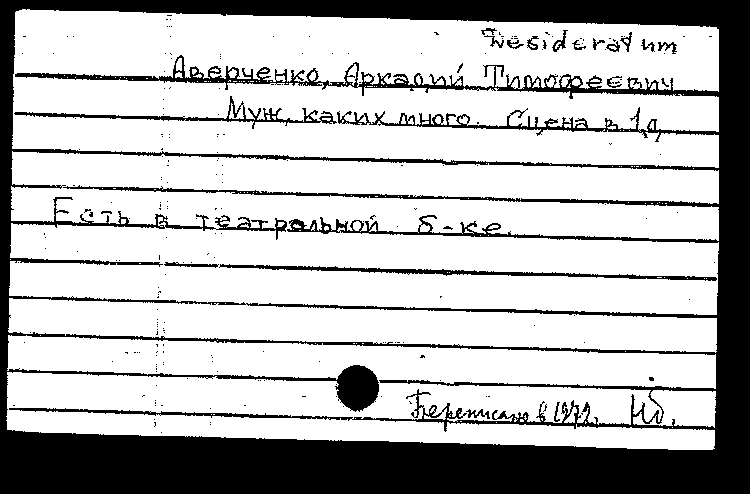 Desideratum
Аверченко, Аркадий Тимофеевич
Муж, каких много. Сцена в 1 д.
Есть в театральной б-ке.
Переписано в 1972.